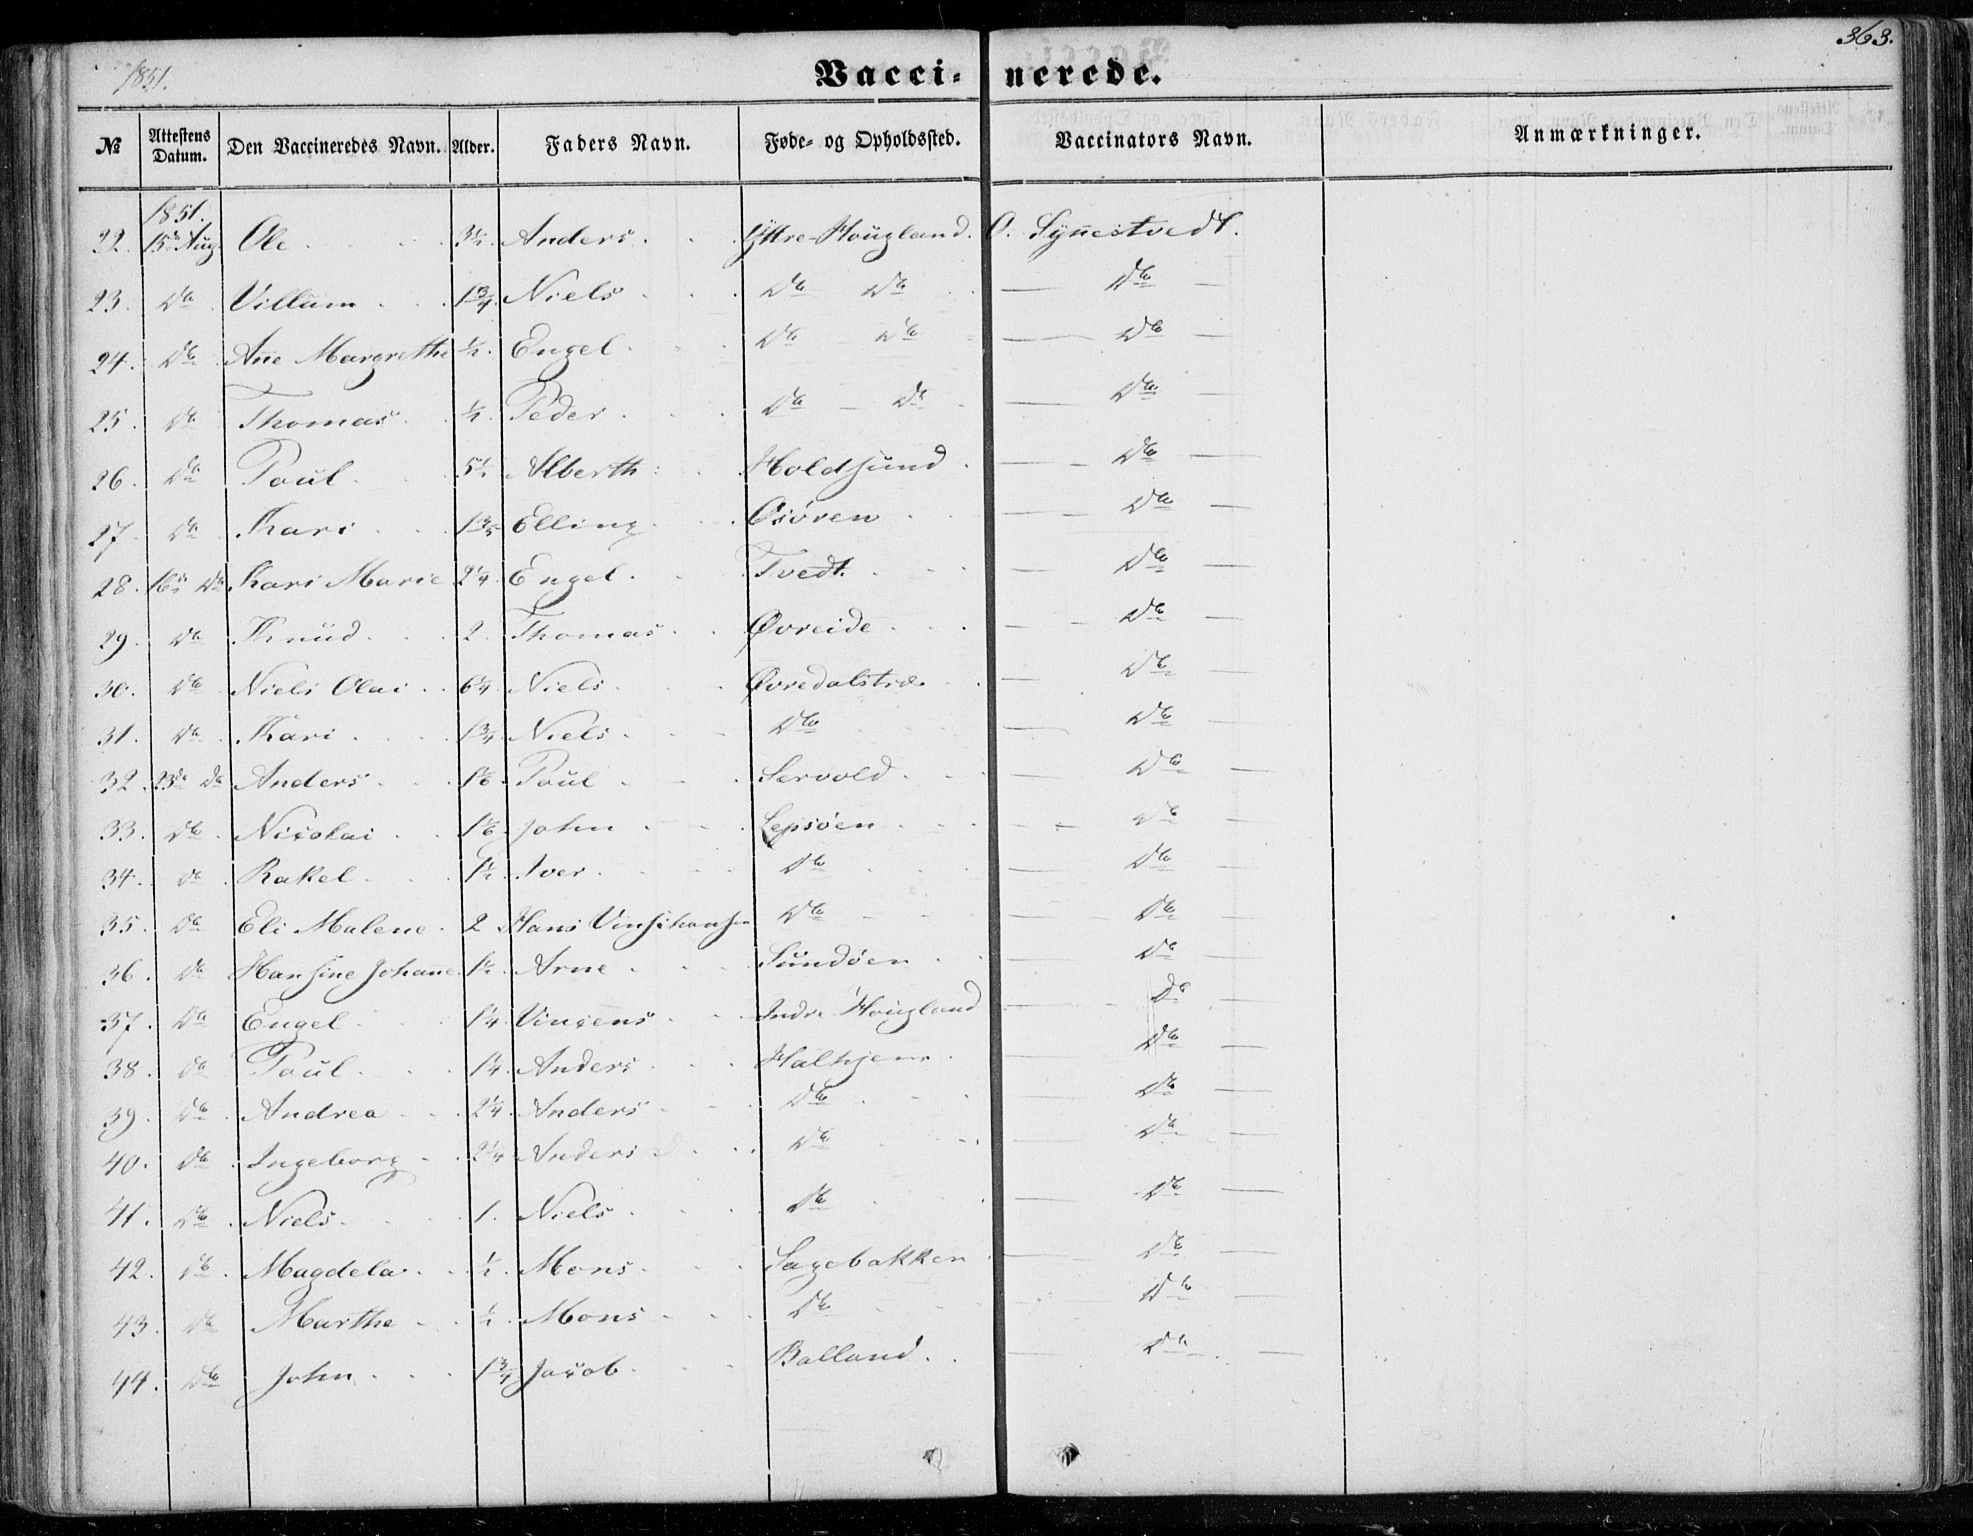 363.
1851.
Vacci- nerede.
№ Attestens Datum. Den Vaccineredes Navn. Alder. Faders Navn. Føde- og Opholdssted. Vaccinators Navn. Anmærkninger.
1851.
22. 15de Aug Ole 3½. Anders Yttre-Hougland. O. Synestvedt.
23. Do Villum 1¾. Niels Do Do Do
24. Do Ane Margrethe ½. Engel Do Do Do
25. Do Thomas ½. Peder Do Do Do
26. Do Poul 5½ Alberth Holdsund Do
27. Do Kari Elling Osøren Do
28. 16de Do Kari Marie 2¼ Engel Tvedt. Do
29. Do Knud 2. Thomas Øvreide Do
30. Do Niels Olai 6¼ Niels Øvredalstræ Do
31. Do Kari 1¾ Niels Do Do
32. 23de Do Anders 1⅙ Poul Servold Do
33. Do Nicolai 1⅙ John Lepsøen Do
34. Do Rakel 1½ Iver Do Do
35. Do Eli Malene 2 Hans Do Do
36. Do Hansine Johanne 1½ Arne Sundøen Do
37. Do Engel 1¼ Vincens Indre Hougland Do
38. Do Poul 1¼ Anders Halhjem Do
39. Do Andrea 2¼ Anders Do Do
40. Do Ingeborg 2¼ Anders Do Do
41. Do Niels 1. Niels Do Do
42. Do Magdela ½. Mons Sagebakken Do
43. Do Marthe ½. Mons Do Do
44. Do John 1¾ Jacob Balland Do